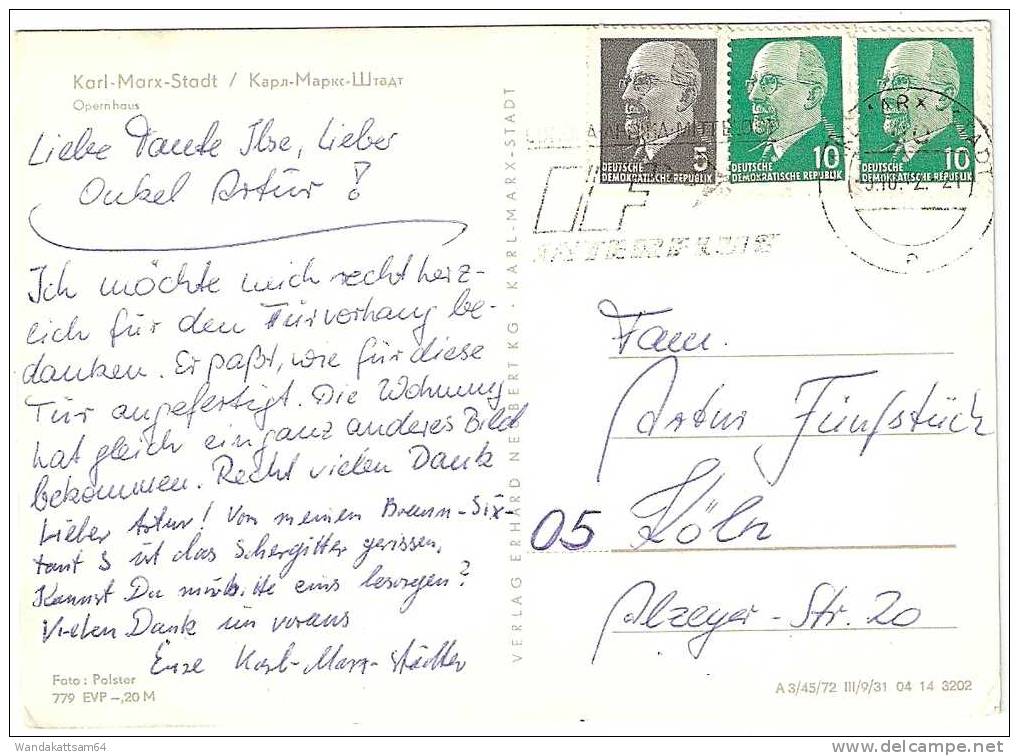 Karl-Marx-Stadt / Карл-Маркс-Штадт
Opernhaus
Liebe Tante Ilse, Lieber
Onkel Artur!
Ich möchte mich recht herz-
lich für den Türvorhang be-
danken. Er paßt, wie für diese
Tür angefertigt. Die Wohnung
hat gleich ein ganz anderes Bild
bekommen. Recht vielen Dank
Lieber Artur! Von meinem Braun-Six-
tant S ist das Schergitter gerissen,
Kannst Du mir bitte eins besorgen?
Vielen Dank im voraus
Eure Karl-Marx-Städter
Foto: Polster
779 EVP –,20 M
VERLAG ERHARD NEUBERT KG · KARL-MARX-STADT
5
DEUTSCHE
DEMOKRATISCHE REPUBLIK
10
DEUTSCHE
DEMOKRATISCHE REPUBLIK
10
DEUTSCHE
DEMOKRATISCHE REPUBLIK
Fam.
Artur Fünfstück
05 Köln
Alzeyer-Str. 20
A 3/45/72 III/9/31 04 14 3202
Wandakattsam64
www.delcampe.net